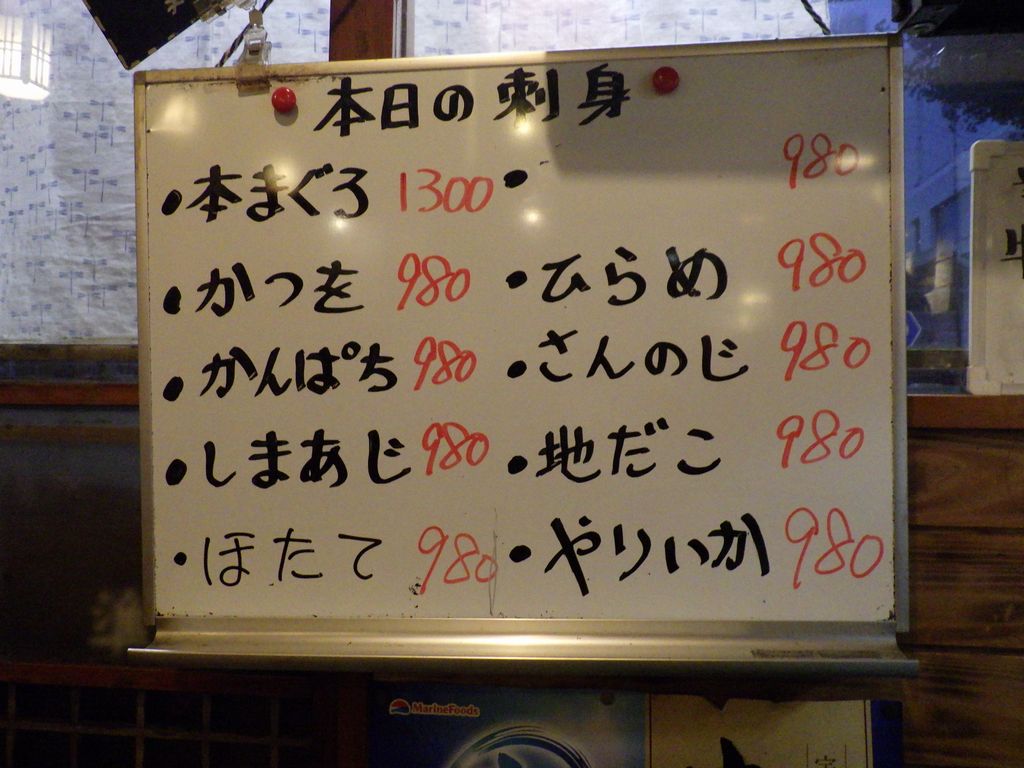 本日の刺身
・本まぐろ 1300
・かつを 980
・かんぱち 980
・しまあじ 980
・ほたて 980
・ 980
・ひらめ 980
・さんのじ 980
・地だこ 980
・やりいか 980
MarineFoods